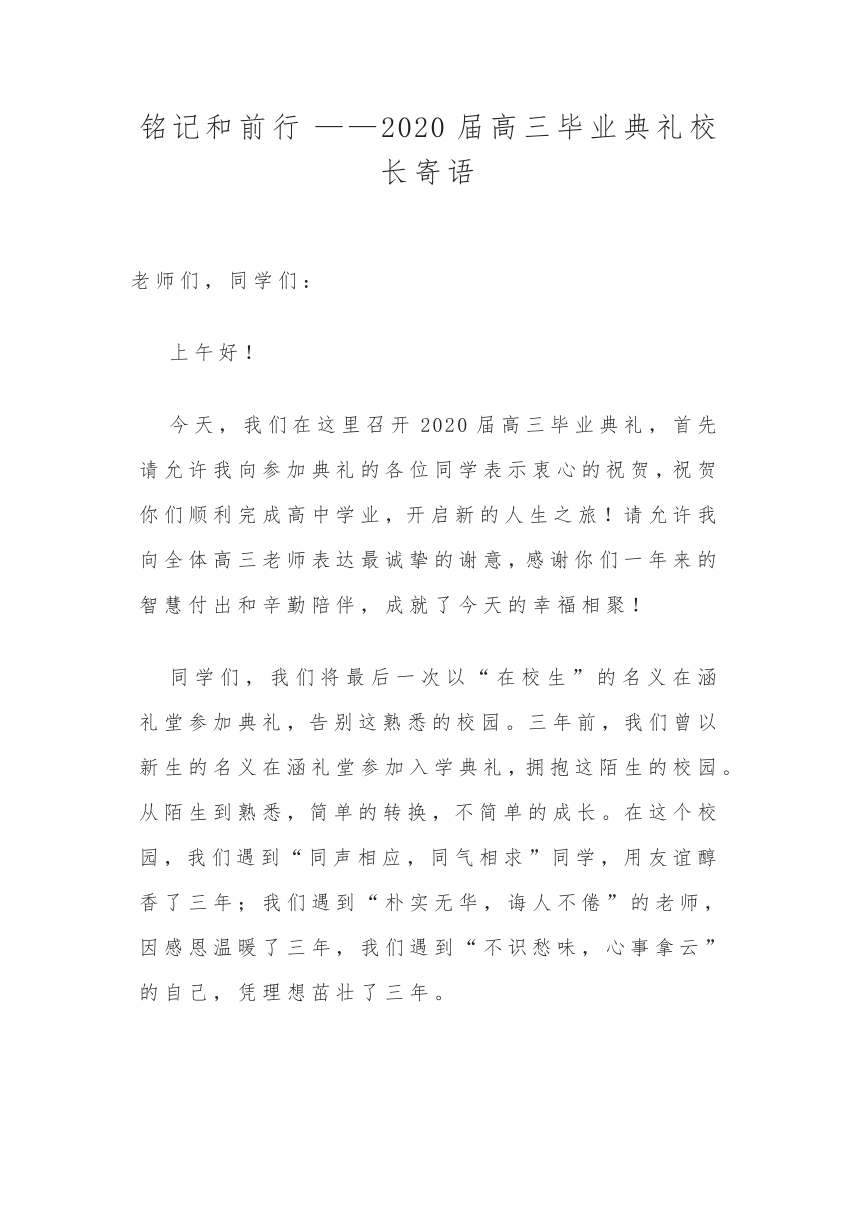 铭记和前行 ——2020 届高三毕业典礼校
长寄语
老师们，同学们：
上午好！
今天，我们在这里召开 2020 届高三毕业典礼，首先
请允许我向参加典礼的各位同学表示衷心的祝贺，祝贺
你们顺利完成高中学业，开启新的人生之旅！请允许我
向全体高三老师表达最诚挚的谢意，感谢你们一年来的
智慧付出和辛勤陪伴，成就了今天的幸福相聚！
同学们，我们将最后一次以“在校生”的名义在涵
礼堂参加典礼，告别这熟悉的校园。三年前，我们曾以
新生的名义在涵礼堂参加入学典礼，拥抱这陌生的校园。
从陌生到熟悉，简单的转换，不简单的成长。在这个校
园，我们遇到“同声相应，同气相求”同学，用友谊醇
香了三年；我们遇到“朴实无华，诲人不倦”的老师，
因感恩温暖了三年，我们遇到“不识愁味，心事拿云”
的自己，凭理想茁壮了三年。